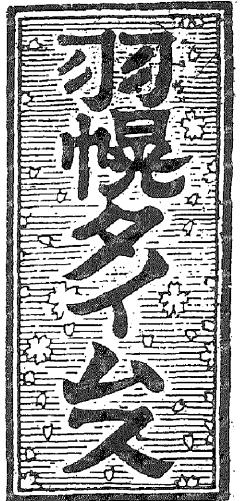 羽幌タイムス